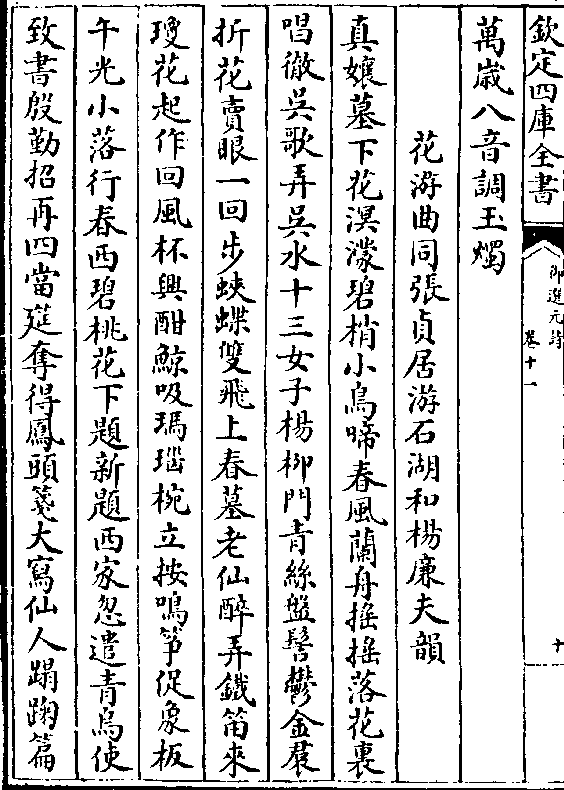 欽定四庫全書
御選元詩
卷十一
十
萬歲八音調玉燭
花游曲同張貞居游石湖和楊廉夫韻
真孃墓下花溟濛碧梢小鳥啼春風蘭舟搖搖落花裏
唱徹吳歌弄吳水十三女子楊柳門青絲盤髻鬱金裙
折花賣眼一回步蛺蝶雙飛上春墓老仙醉弄鐵笛來
瓊花起作回風杯興酣鯨吸瑪瑙椀立按鳴箏促象板
午光小落行春西碧桃花下題新題西家忽遣青鳥使
致書殷勤招再四當筵奪得鳳頭箋大寫仙人蹋踘篇